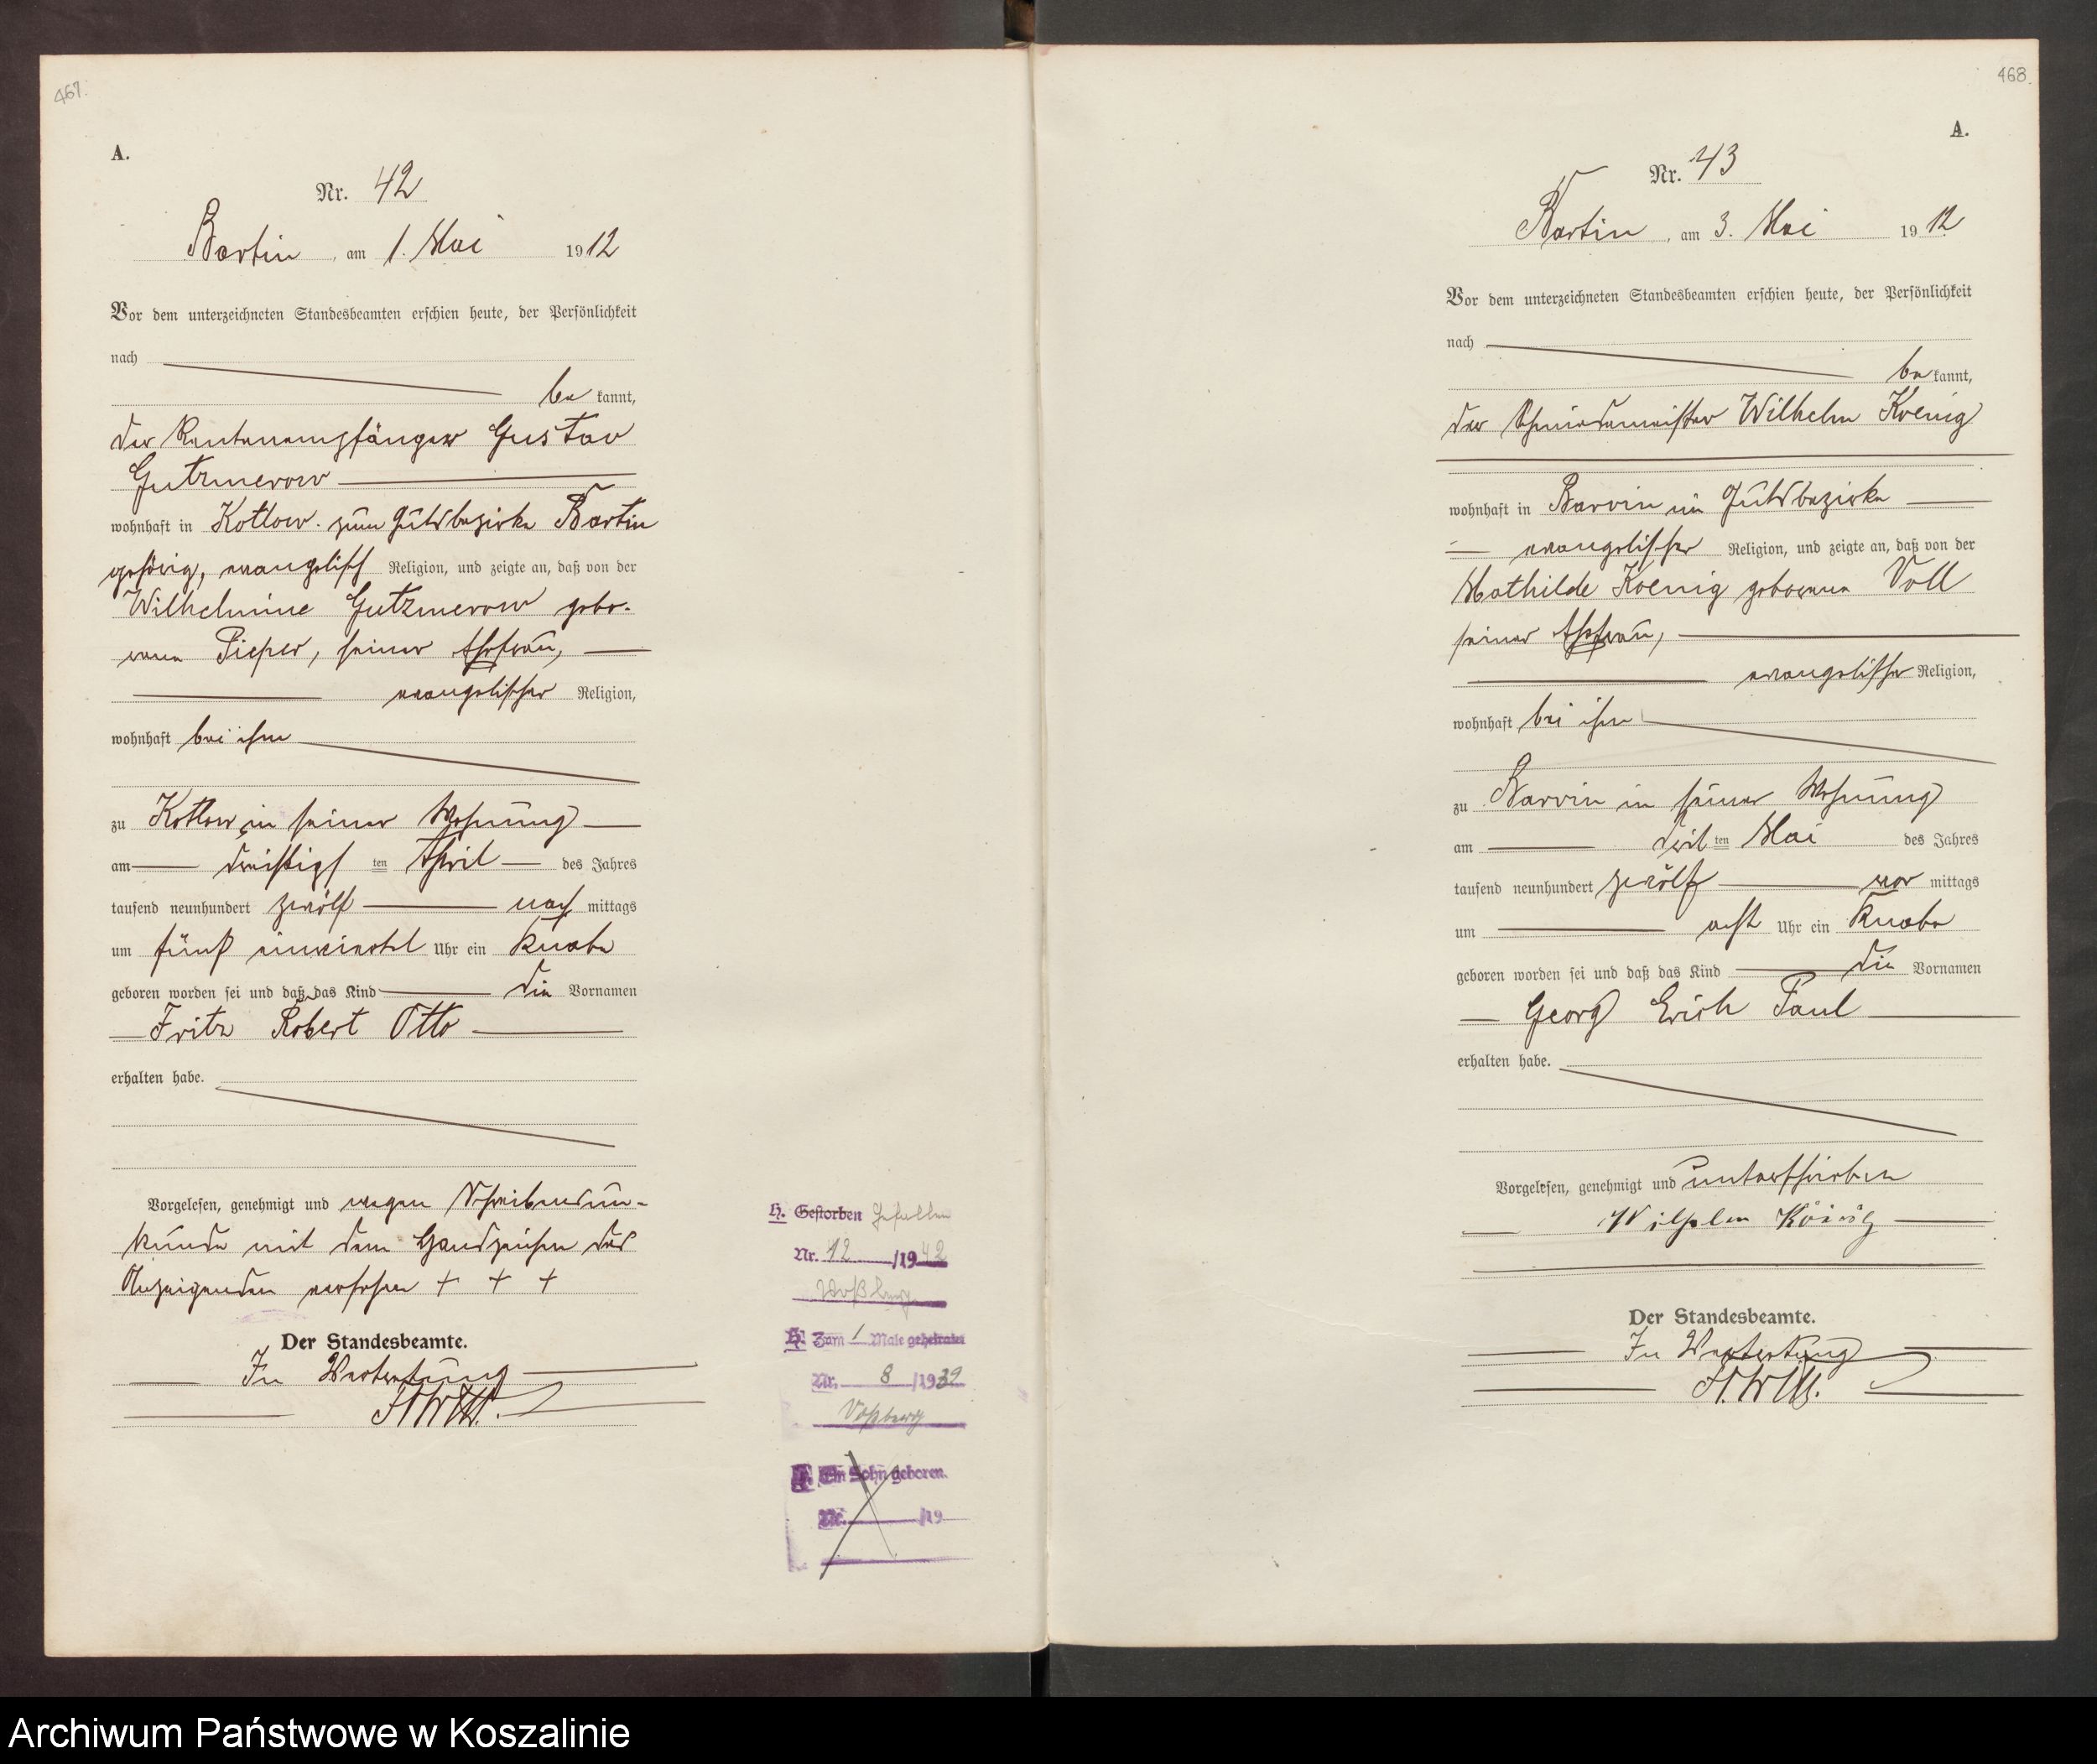 467.
A.
Nr. 42
Bartin, am 1. Mai 1912
Vor dem unterzeichneten Standesbeamten erschien heute, der Persönlichkeit
nach
be kannt,
der Rentenempfänger Gustav
Gutzmerow
wohnhaft in Kottow. zum Gutsbezirke Bartin
gehörig, evangelisch Religion, und zeigte an, daß von der
Wilhelmine Gutzmerow gebo-
rene Pieper, seiner Ehefrau,
evangelischer Religion,
wohnhaft bei ihm
zu Kottow in seiner Wohnung
am dreißigsten April des Jahres
tausend neunhundert zwölf nach mittags
um fünf einviertel Uhr ein Knabe
geboren worden sei und daß das Kind die Vornamen
Fritz Robert Otto
erhalten habe.
Vorgelesen, genehmigt und wegen Schreibensun-
kunde mit dem Handzeichen des
Anzeigenden versehen + + +
Der Standesbeamte.
In Vertretung
H. Gestorben Gefallen
Nr. 12 /1942
Voßberg
H. Zum 1 Male geheiratet
Nr. 8 /1939
Voßberg
Ein Sohn geboren.
Nr. /19
468.
A.
Nr. 43
Bartin, am 3. Mai 1912
Vor dem unterzeichneten Standesbeamten erschien heute, der Persönlichkeit
nach
be kannt,
der Schmiedemeister Wilhelm Koenig
wohnhaft in Barvin im Gutsbezirke
evangelischer Religion, und zeigte an, daß von der
Mathilde Koenig geborenen Voll
seiner Ehefrau,
evangelischer Religion,
wohnhaft bei ihm
zu Barvin in seiner Wohnung
am dritten Mai des Jahres
tausend neunhundert zwölf vor mittags
um acht Uhr ein Knabe
geboren worden sei und daß das Kind die Vornamen
Georg Erich Paul
erhalten habe.
Vorgelesen, genehmigt und unterschrieben
Wilhelm König
Der Standesbeamte.
In Vertretung
Archiwum Państwowe w Koszalinie